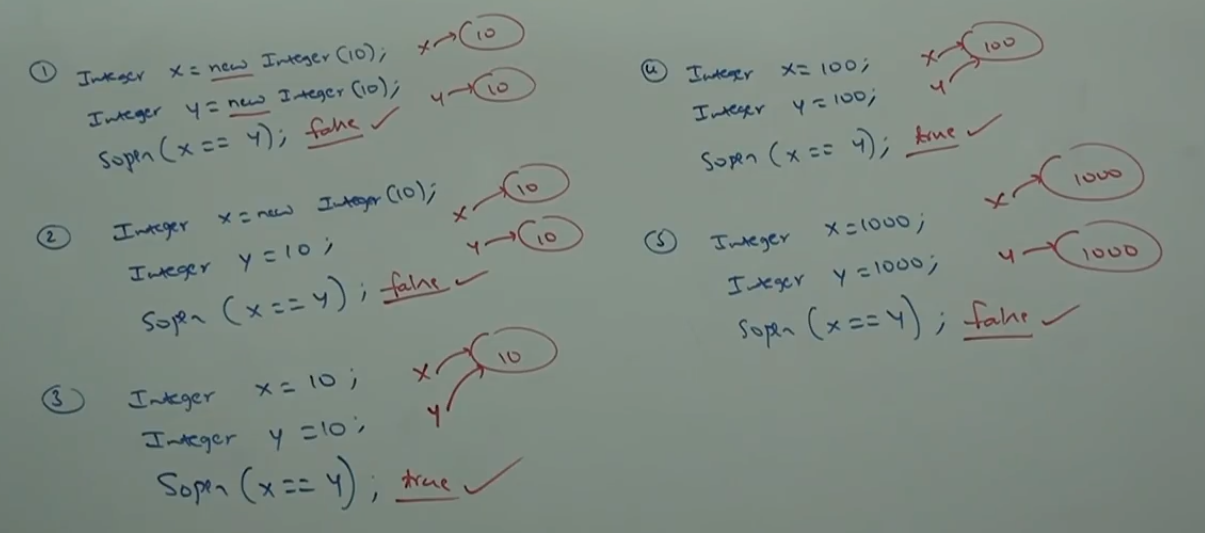 ① Integer x = new Integer(10); x → 10
Integer y = new Integer(10); y → 10
Sopln(x == y); false ✓
② Integer x = new Integer(10); x → 10
Integer y = 10; y → 10
Sopln(x == y); false ✓
③ Integer x = 10; x → 10
Integer y = 10; y
Sopln(x == y); true ✓
④ Integer x = 100; x → 100
Integer y = 100; y
Sopln(x == y); true ✓
⑤ Integer x = 1000; x → 1000
Integer y = 1000; y → 1000
Sopln(x == y); false ✓